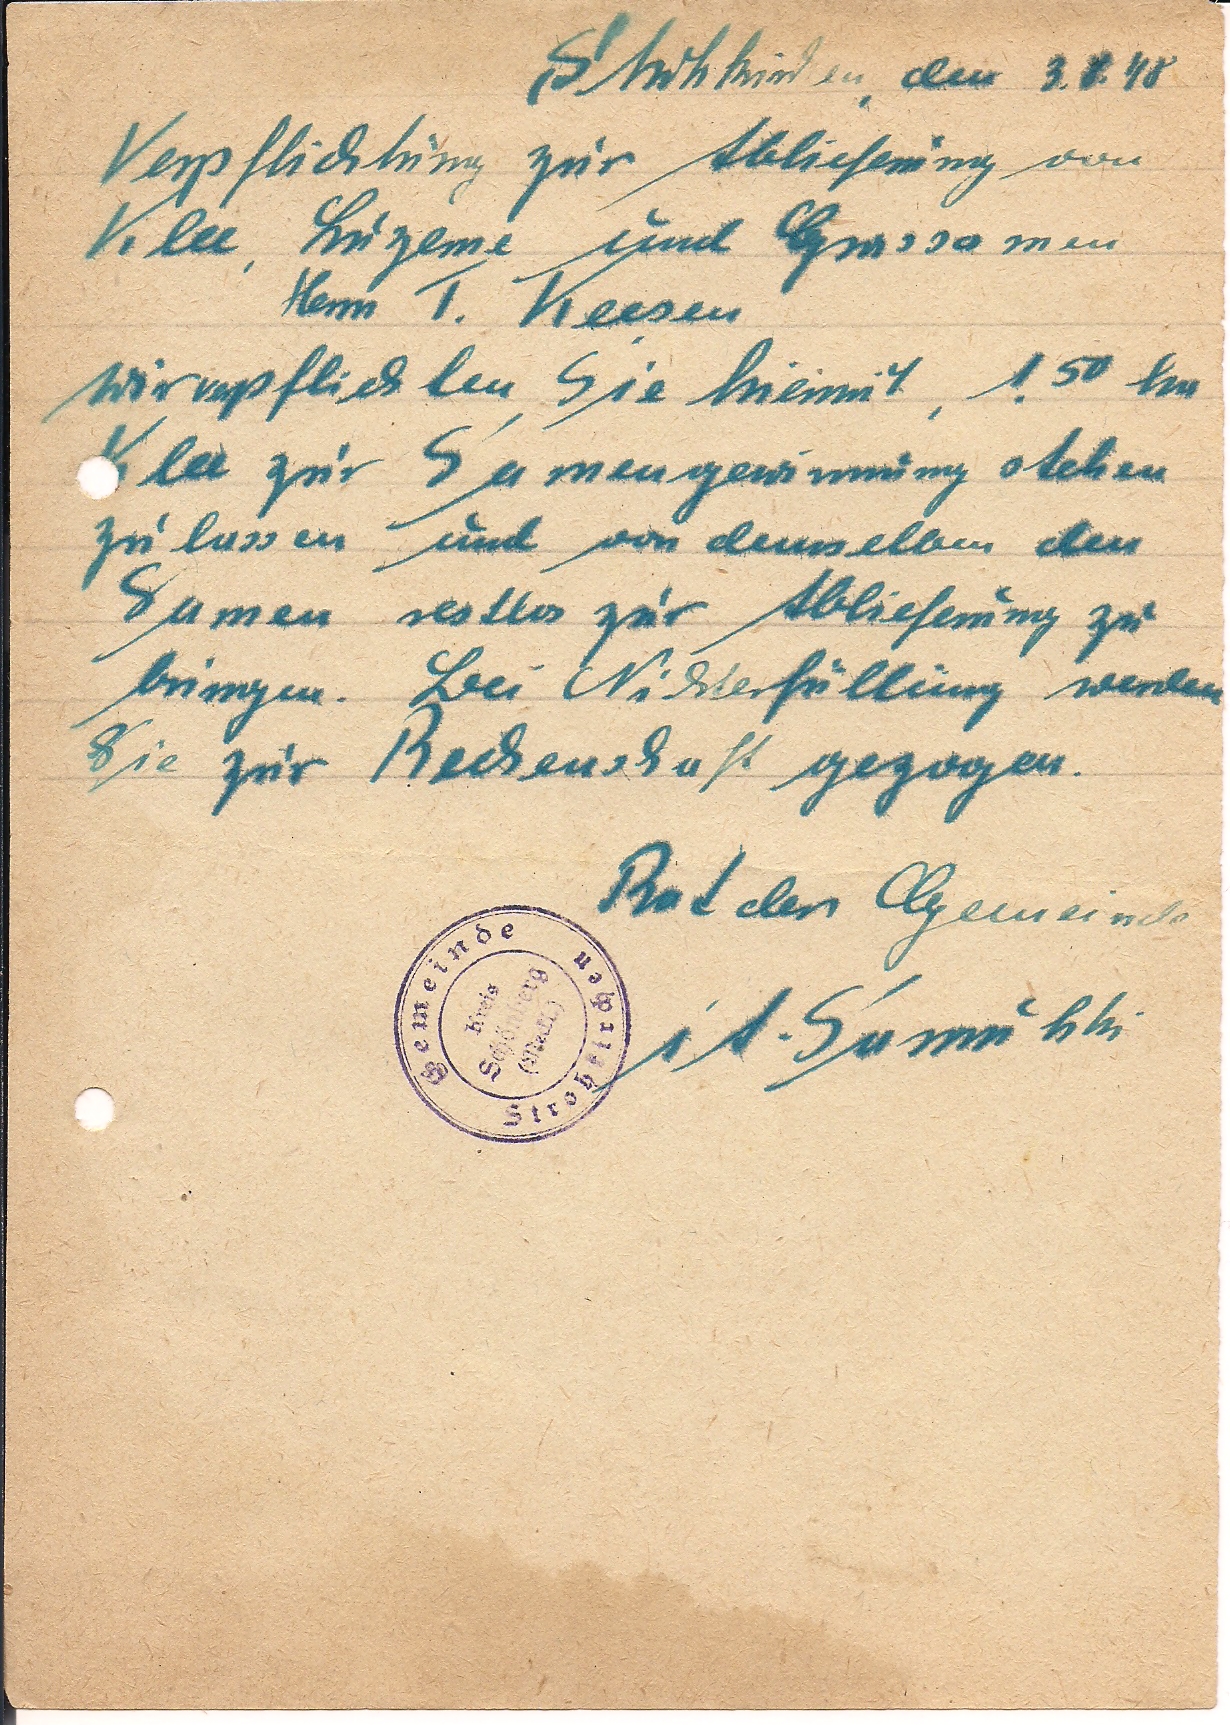 Strohkirchen, den 3.8.48
Verpflichtung zur Ablieferung von
Klee, Luzerne und Grassamen
Herrn T. Keesen
wir verpflichten Sie hiermit, 1.50 ha
Klee zur Samengewinnung stehen
zu lassen und von demselben den
Samen restlos zur Ablieferung zu
bringen. Bei Nichterfüllung werden
Sie zur Rechenschaft gezogen.
Rat der Gemeinde
i A.
Gemeinde Strohkirchen
Kreis
Schönberg
(Meckl.)